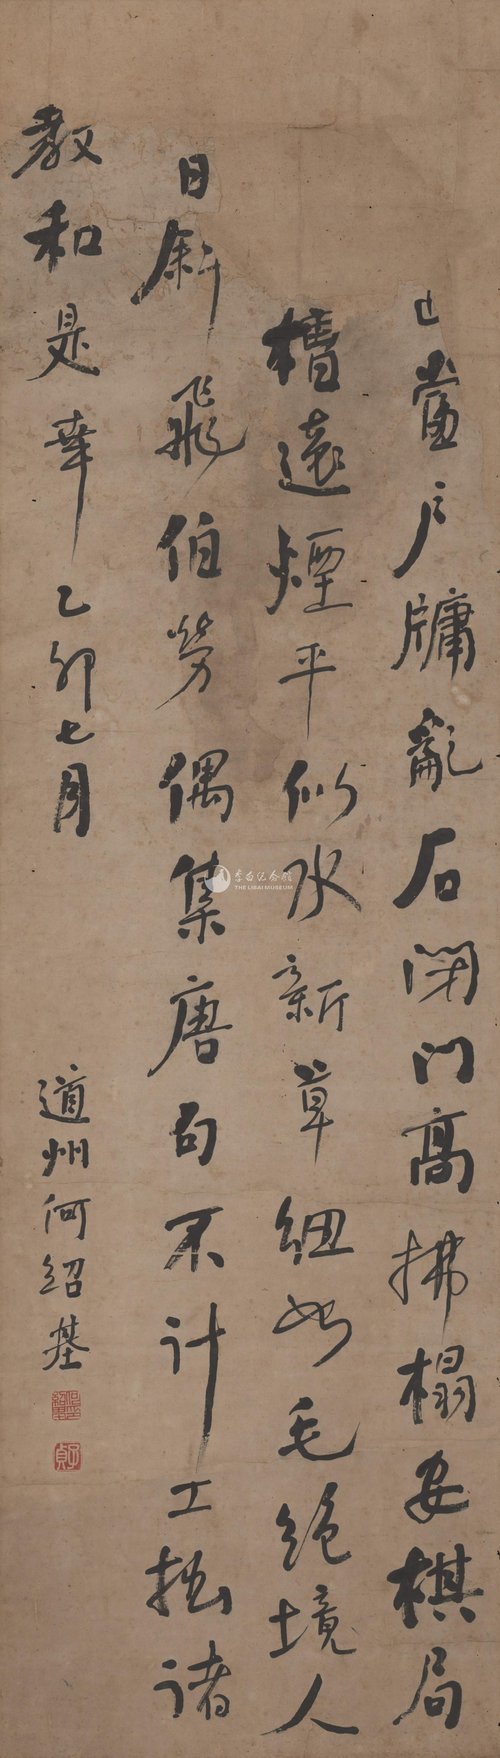 山當户牖亂石閉門高拂榻安棋局
槽遠煙平似水新草細如毛絕境人
日斜飛伯勞偶集唐句不計工拙諸
教和是幸乙卯七月
道州何紹基
子貞
李白纪念馆
THE LIBAI MUSEUM